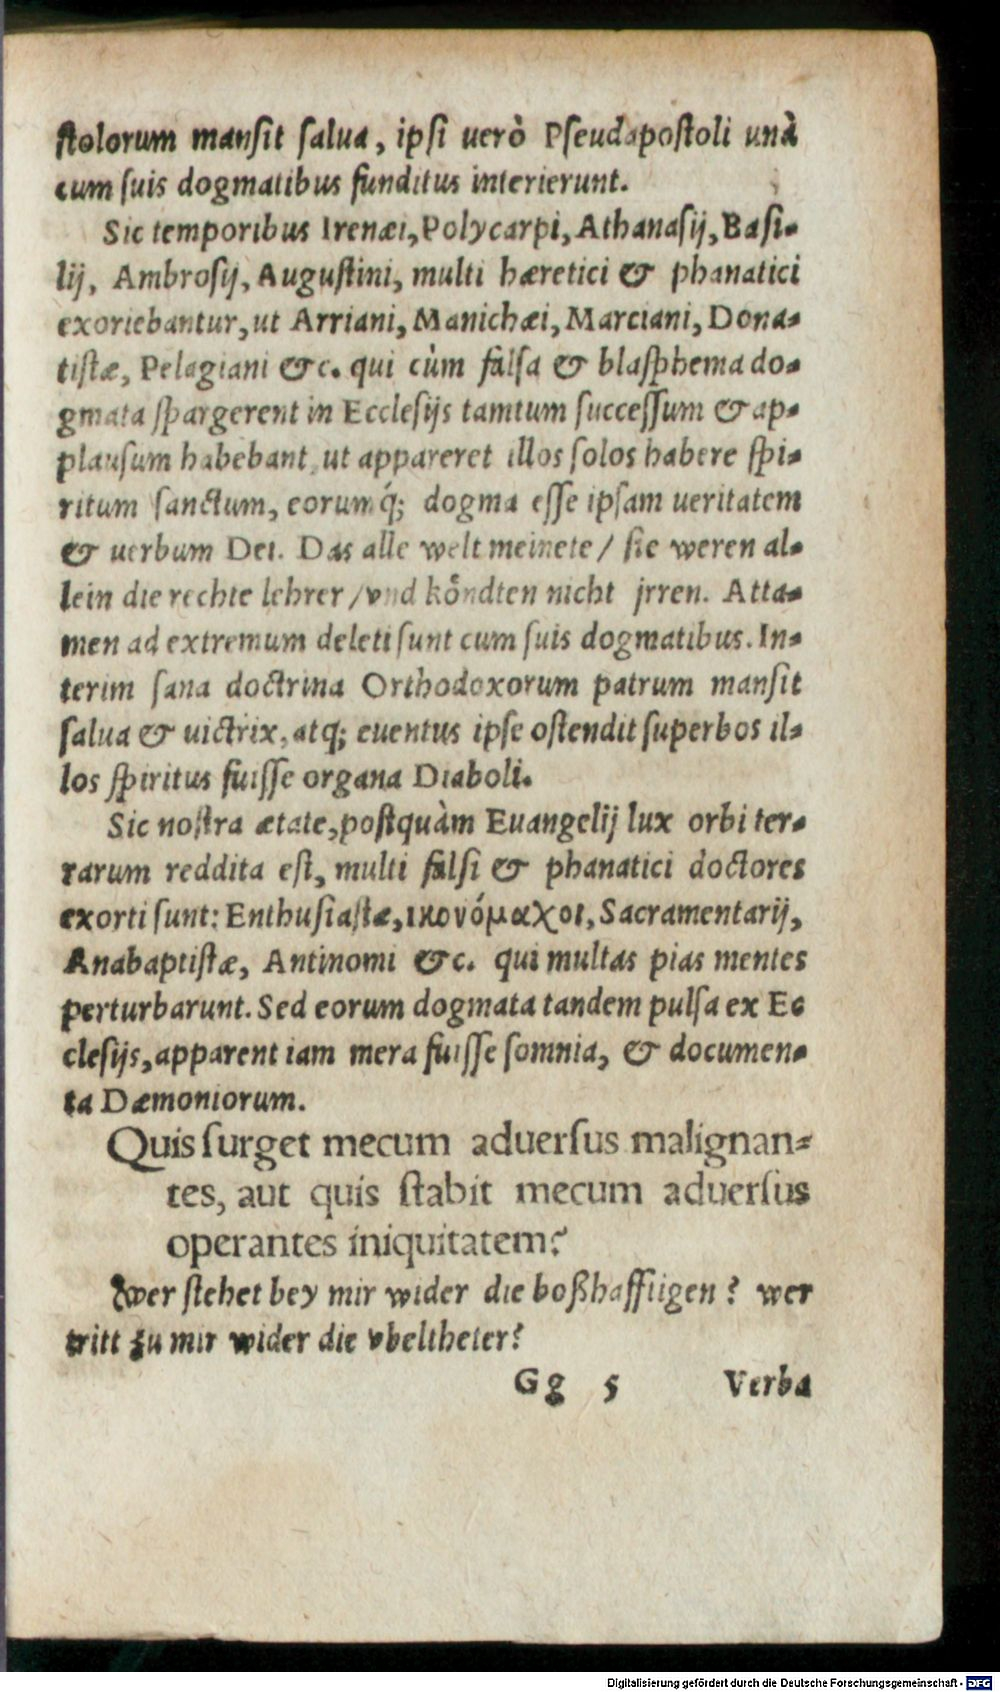 stolorum mansit salua, ipsi uerò Pseudapostoli unà
cum suis dogmatibus funditus interierunt.
Sic temporibus Irenæi, Polycarpi, Athanasij, Basi-
lij, Ambrosij, Augustini, multi hæretici & phanatici
exoriebantur, ut Arriani, Manichæi, Marciani, Dona-
tistæ, Pelagiani &c. qui cùm falsa & blasphema do-
gmata spargerent in Ecclesijs tamtum successum & ap-
plausum habebant, ut appareret illos solos habere spi-
ritum sanctum, eorumq́; dogma esse ipsam ueritatem
& uerbum Dei. Das alle welt meinete / sie weren al-
lein die rechte lehrer / vnd koͤndten nicht jrren. Atta-
men ad extremum deleti sunt cum suis dogmatibus. In-
terim sana doctrina Orthodoxorum patrum mansit
salua & uictrix, atq; euentus ipse ostendit superbos il-
los spiritus fuisse organa Diaboli.
Sic nostra ætate, postquàm Euangelij lux orbi ter-
rarum reddita est, multi falsi & phanatici doctores
exorti sunt: Enthusiastæ, ικονόμαχοι, Sacramentarij,
Anabaptistæ, Antinomi &c. qui multas pias mentes
perturbarunt. Sed eorum dogmata tandem pulsa ex Ec
clesijs, apparent iam mera fuisse somnia, & documen-
ta Dæmoniorum.
Quis surget mecum aduersus malignan-
tes, aut quis stabit mecum aduersus
operantes iniquitatem?
Wer stehet bey mir wider die boßhafftigen? wer
tritt zu mir wider die vbeltheter?
Gg 5 Verba
Digitalisierung gefördert durch die Deutsche Forschungsgemeinschaft - DFG